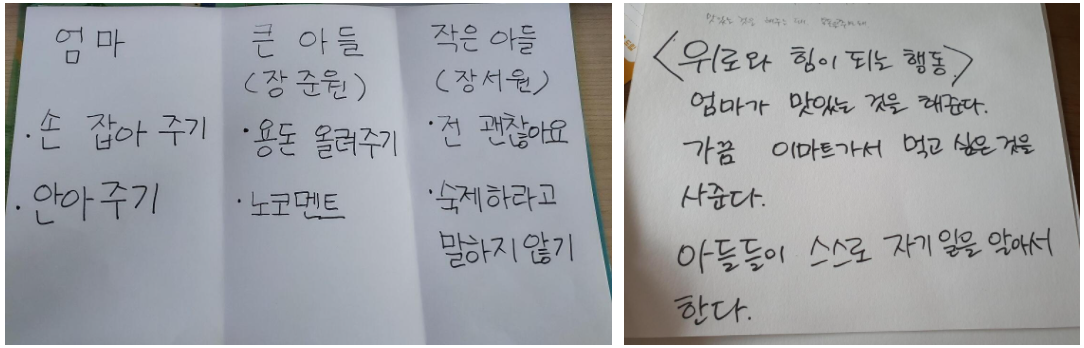 엄마
· 손 잡아 주기
· 안아 주기
큰 아들
(장준원)
· 용돈 올려주기
· 노코멘트
작은 아들
(장서원)
· 전 괜찮아요
· 숙제하라고
말하지 않기
맛있는 것을 해주는 때
<위로와 힘이 되는 행동>
엄마가 맛있는 것을 해준다.
가끔 이마트가서 먹고 싶은것을
사준다.
아들들이 스스로 자기일을 알아서
한다.